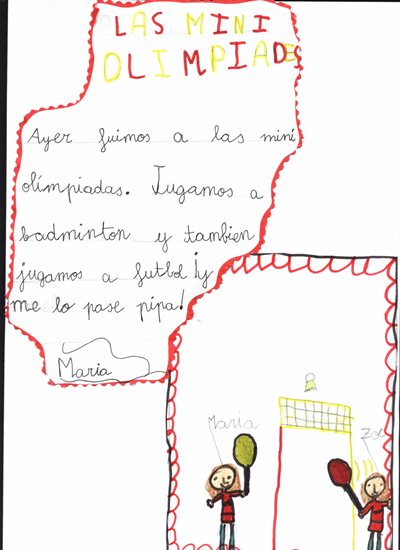 LAS MINI
OLIMPIADS
Ayer fuimos a las mini
olímpiadas. Jugamos a
badminton y tambien
jugamos a futbol ¡y
me lo pase pipa!
Maria
María
Zoe